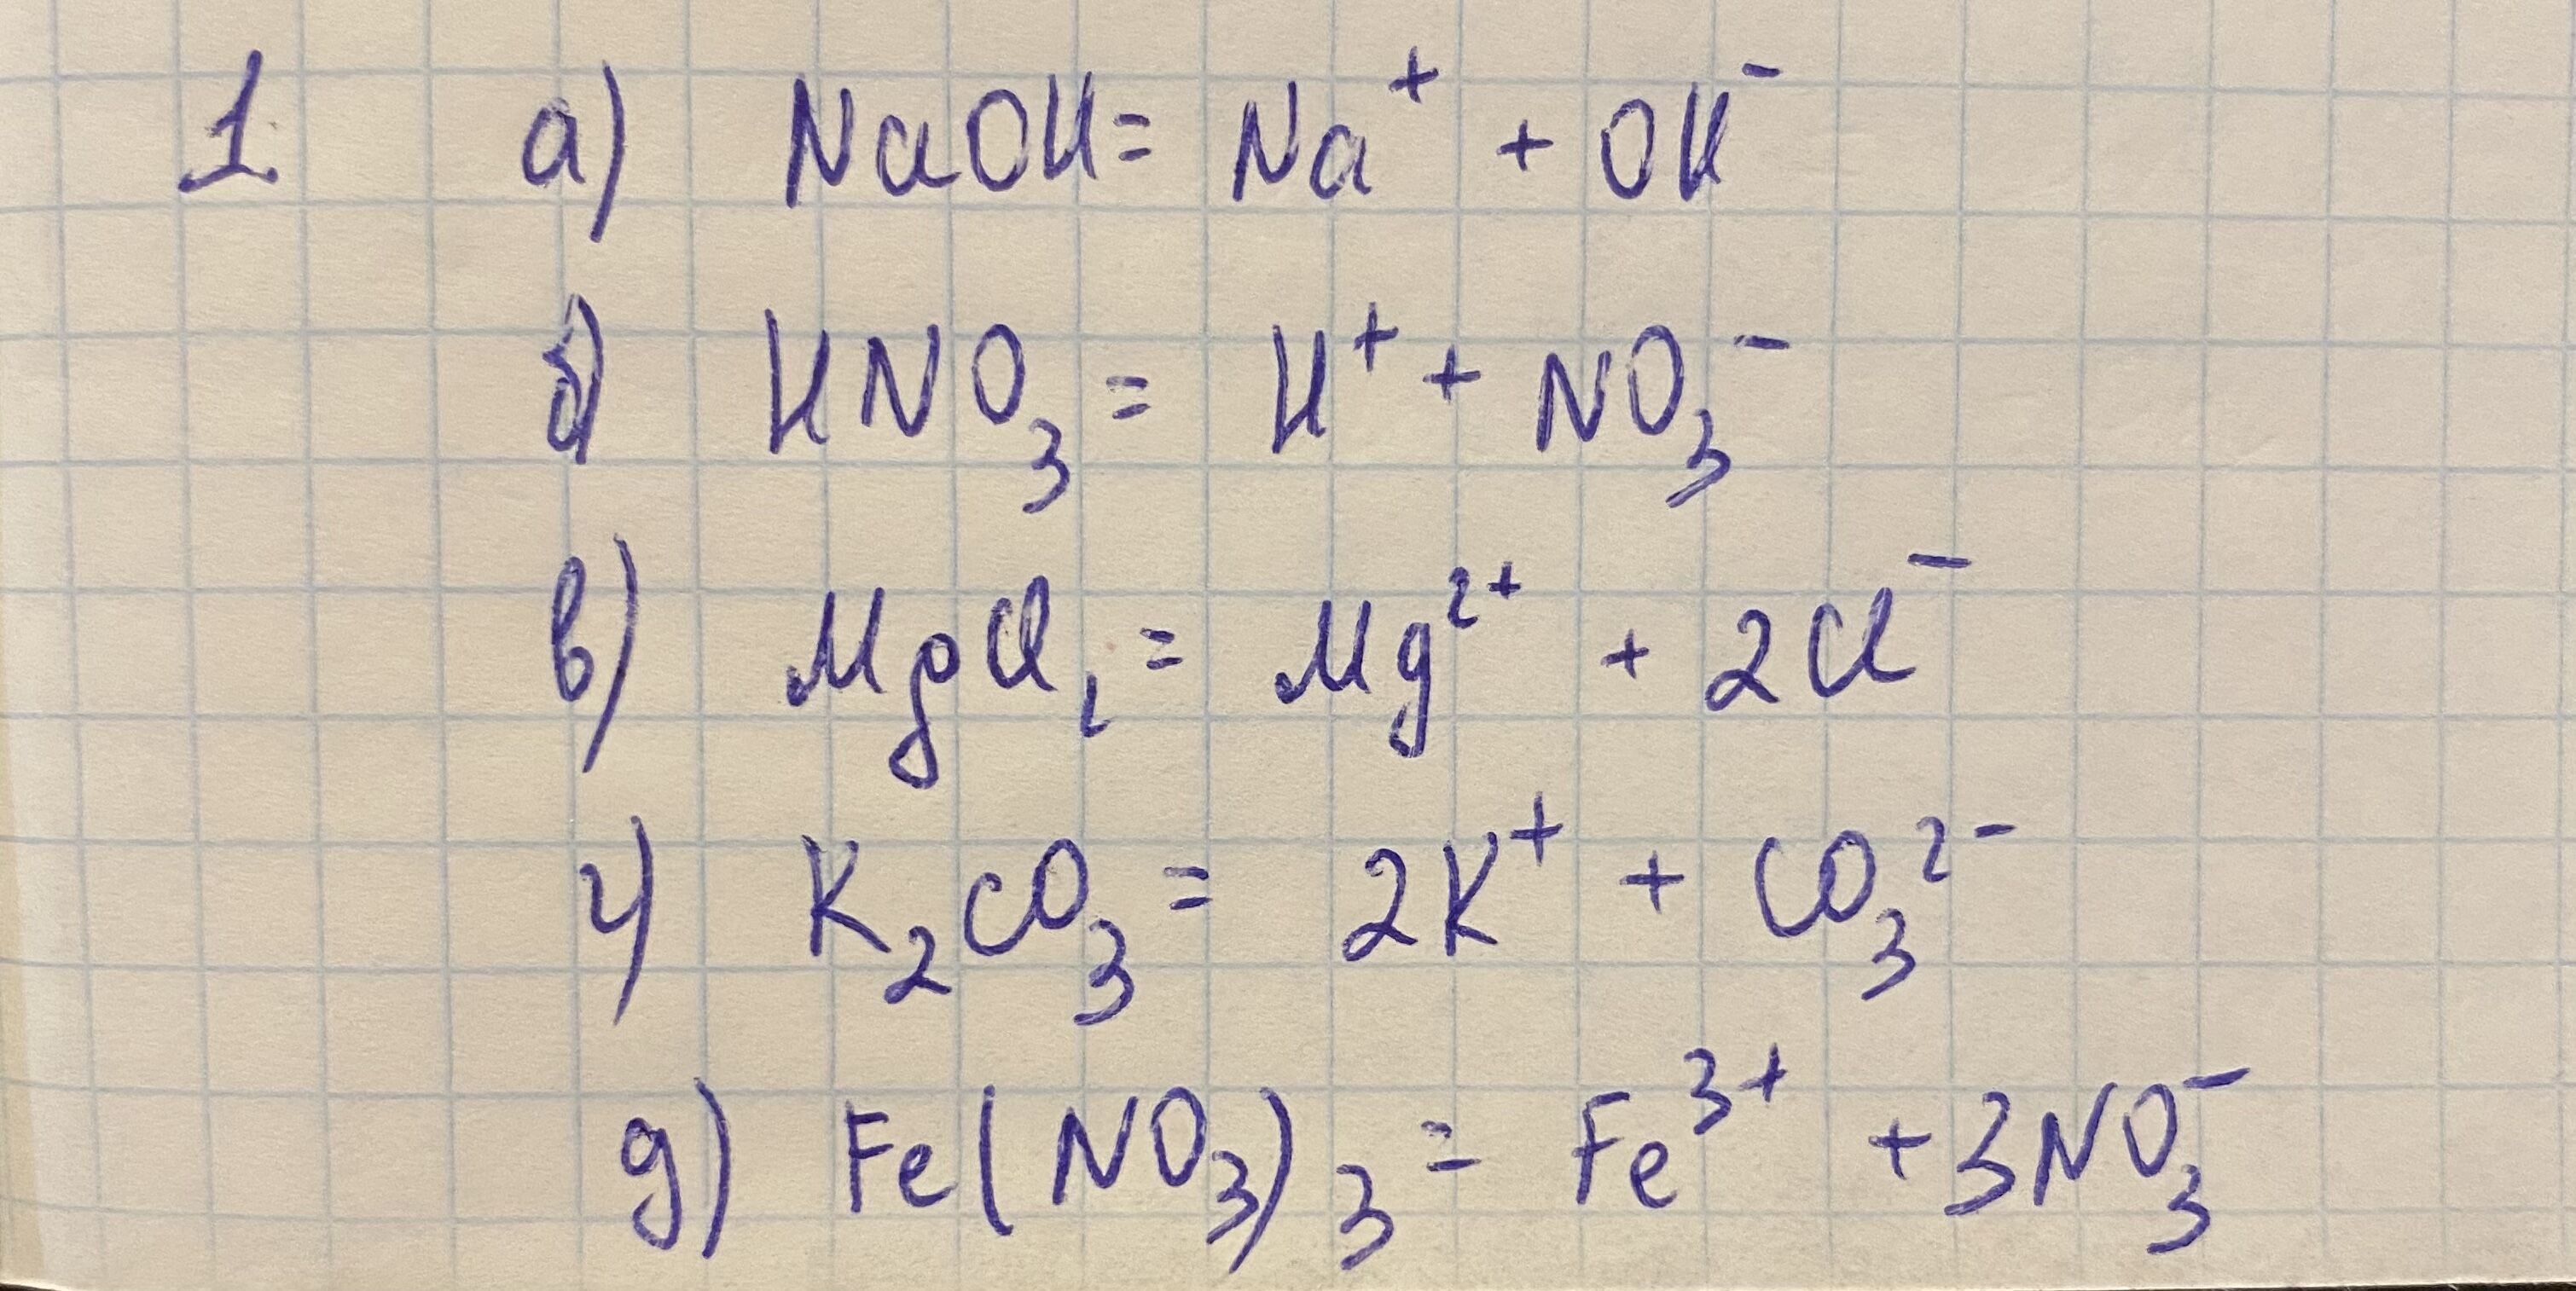 1. а) NaOH = Na⁺ + OH⁻
б) HNO₃ = H⁺ + NO₃⁻
в) MgCl₂ = Mg²⁺ + 2Cl⁻
г) K₂CO₃ = 2K⁺ + CO₃²⁻
д) Fe(NO₃)₃ = Fe³⁺ + 3NO₃⁻